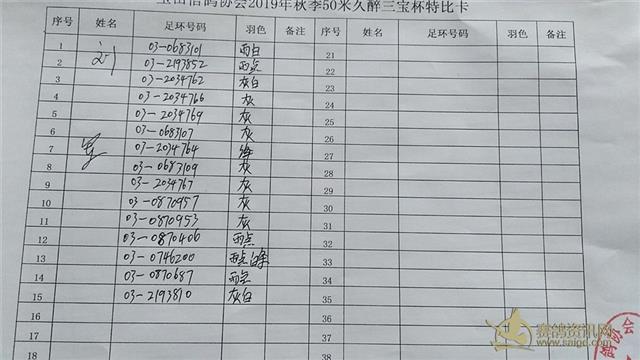 玉田信鸽协会2019年秋季50米久醉三宝杯特比卡
序号 姓名 足环号码 羽色 备注 序号 姓名 足环号码 羽色 备注
1 刘 03-0683101 雨白 21
2 03-2193852 雨点 22
3 03-2034762 灰白 23
4 03-2034766 灰 24
5 03-2034769 灰 25
6 03-0683107 灰 26
7 03-2034764 绛 27
8 03-0683109 灰 28
9 03-2034767 灰 29
10 03-0870957 灰 30
11 03-0870953 灰 31
12 03-0870406 雨点 32
13 03-0746200 雨点白条 33
14 03-0870687 雨点 34
15 03-2193810 灰白 35
16 36
17 37
18 38
赛鸽资讯网
www.saige.com